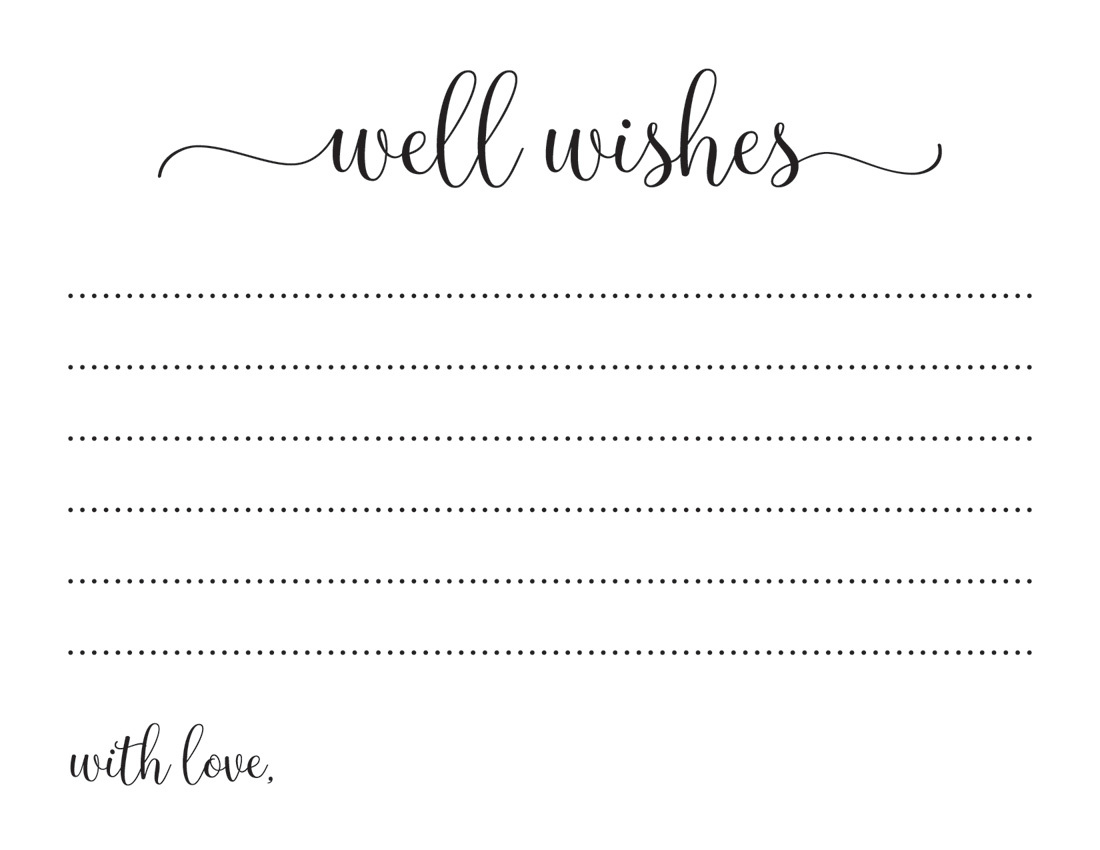 well wishes
with love,